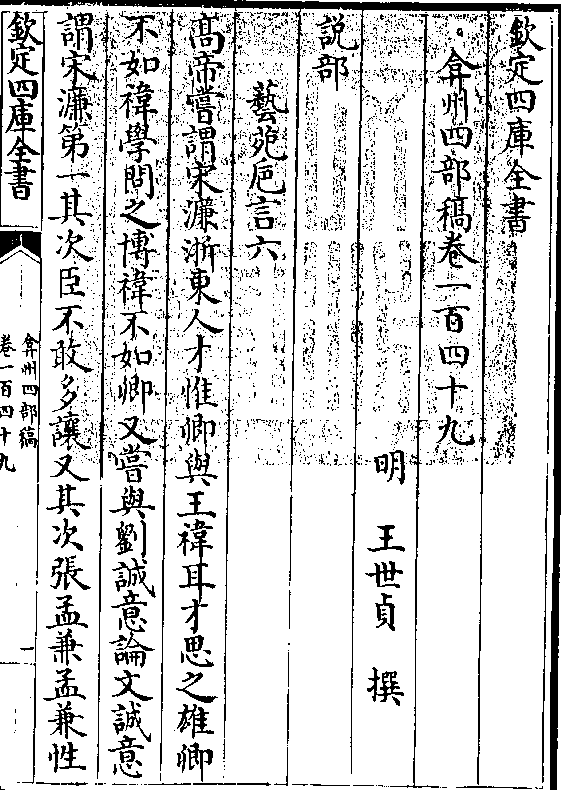 欽定四庫全書
弇州四部稿卷一百四十九
明 王世貞 撰
説部
藝苑巵言六
髙帝嘗謂宋濂浙東人才惟卿與王禕耳才思之雄卿
不如禕學問之博禕不如卿又嘗與劉誠意論文誠意
謂宋濂第一其次臣不敢多讓又其次張孟兼孟兼性
欽定四庫全書
弇州四部稿
卷一百四十九
一